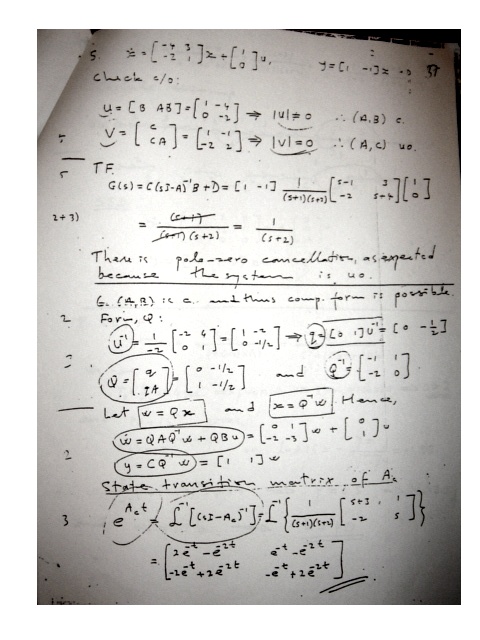 5. ẋ = [-4 3; -2 1] x + [1; 0] u, y = [1 -1] x
Check c/o:
U = [B AB] = [1 -4; 0 -2] ⇒ |U| ≠ 0 ∴ (A,B) c.
V = [C; CA] = [1 -1; -2 2] ⇒ |V| = 0 ∴ (A,C) uo.
5 TF
G(s) = C(sI-A)⁻¹B + D = [1 -1] 1/((s+1)(s+2)) [s-1 3; -2 s+4] [1; 0]
2+3) = (s+1)/((s+1)(s+2)) = 1/(s+2)
There is pole-zero cancellation, as expected
because the system is uo.
6. (A,B) is c. and thus comp. form is possible.
2 Form, Q:
U⁻¹ = 1/-2 [-2 4; 0 1] = [1 -2; 0 -1/2] ⇒ q = [0 1] U⁻¹ = [0 -1/2]
Q = [q; qA] = [0 -1/2; 1 -1/2] and Q⁻¹ = [-1 1; -2 0].
Let w = Qx and x = Q⁻¹w. Hence,
ẇ = QAQ⁻¹w + QBu = [0 1; -2 -3] w + [0; 1] u
2 y = CQ⁻¹w = [1 1] w
State transition matrix of Ac
3 e^{Ac t} = L⁻¹[(sI-Ac)⁻¹] = L⁻¹{1/((s+1)(s+2)) [s+3 1; -2 s]}
= [2e^{-t} - e^{-2t} e^{-t} - e^{-2t}; -2e^{-t} + 2e^{-2t} -e^{-t} + 2e^{-2t}]